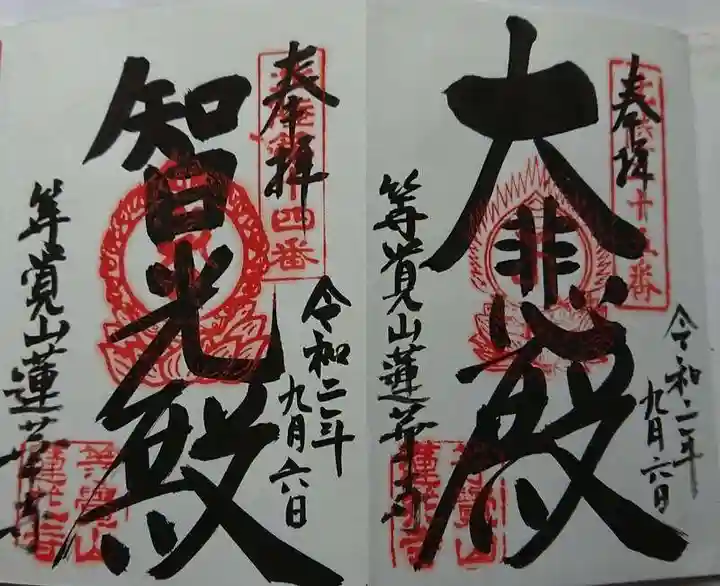 奉拝
大悲殿
等覚山蓮華寺
令和二年
九月六日
奉拝
四番
智光殿
等覚山蓮華寺
令和二年
九月六日